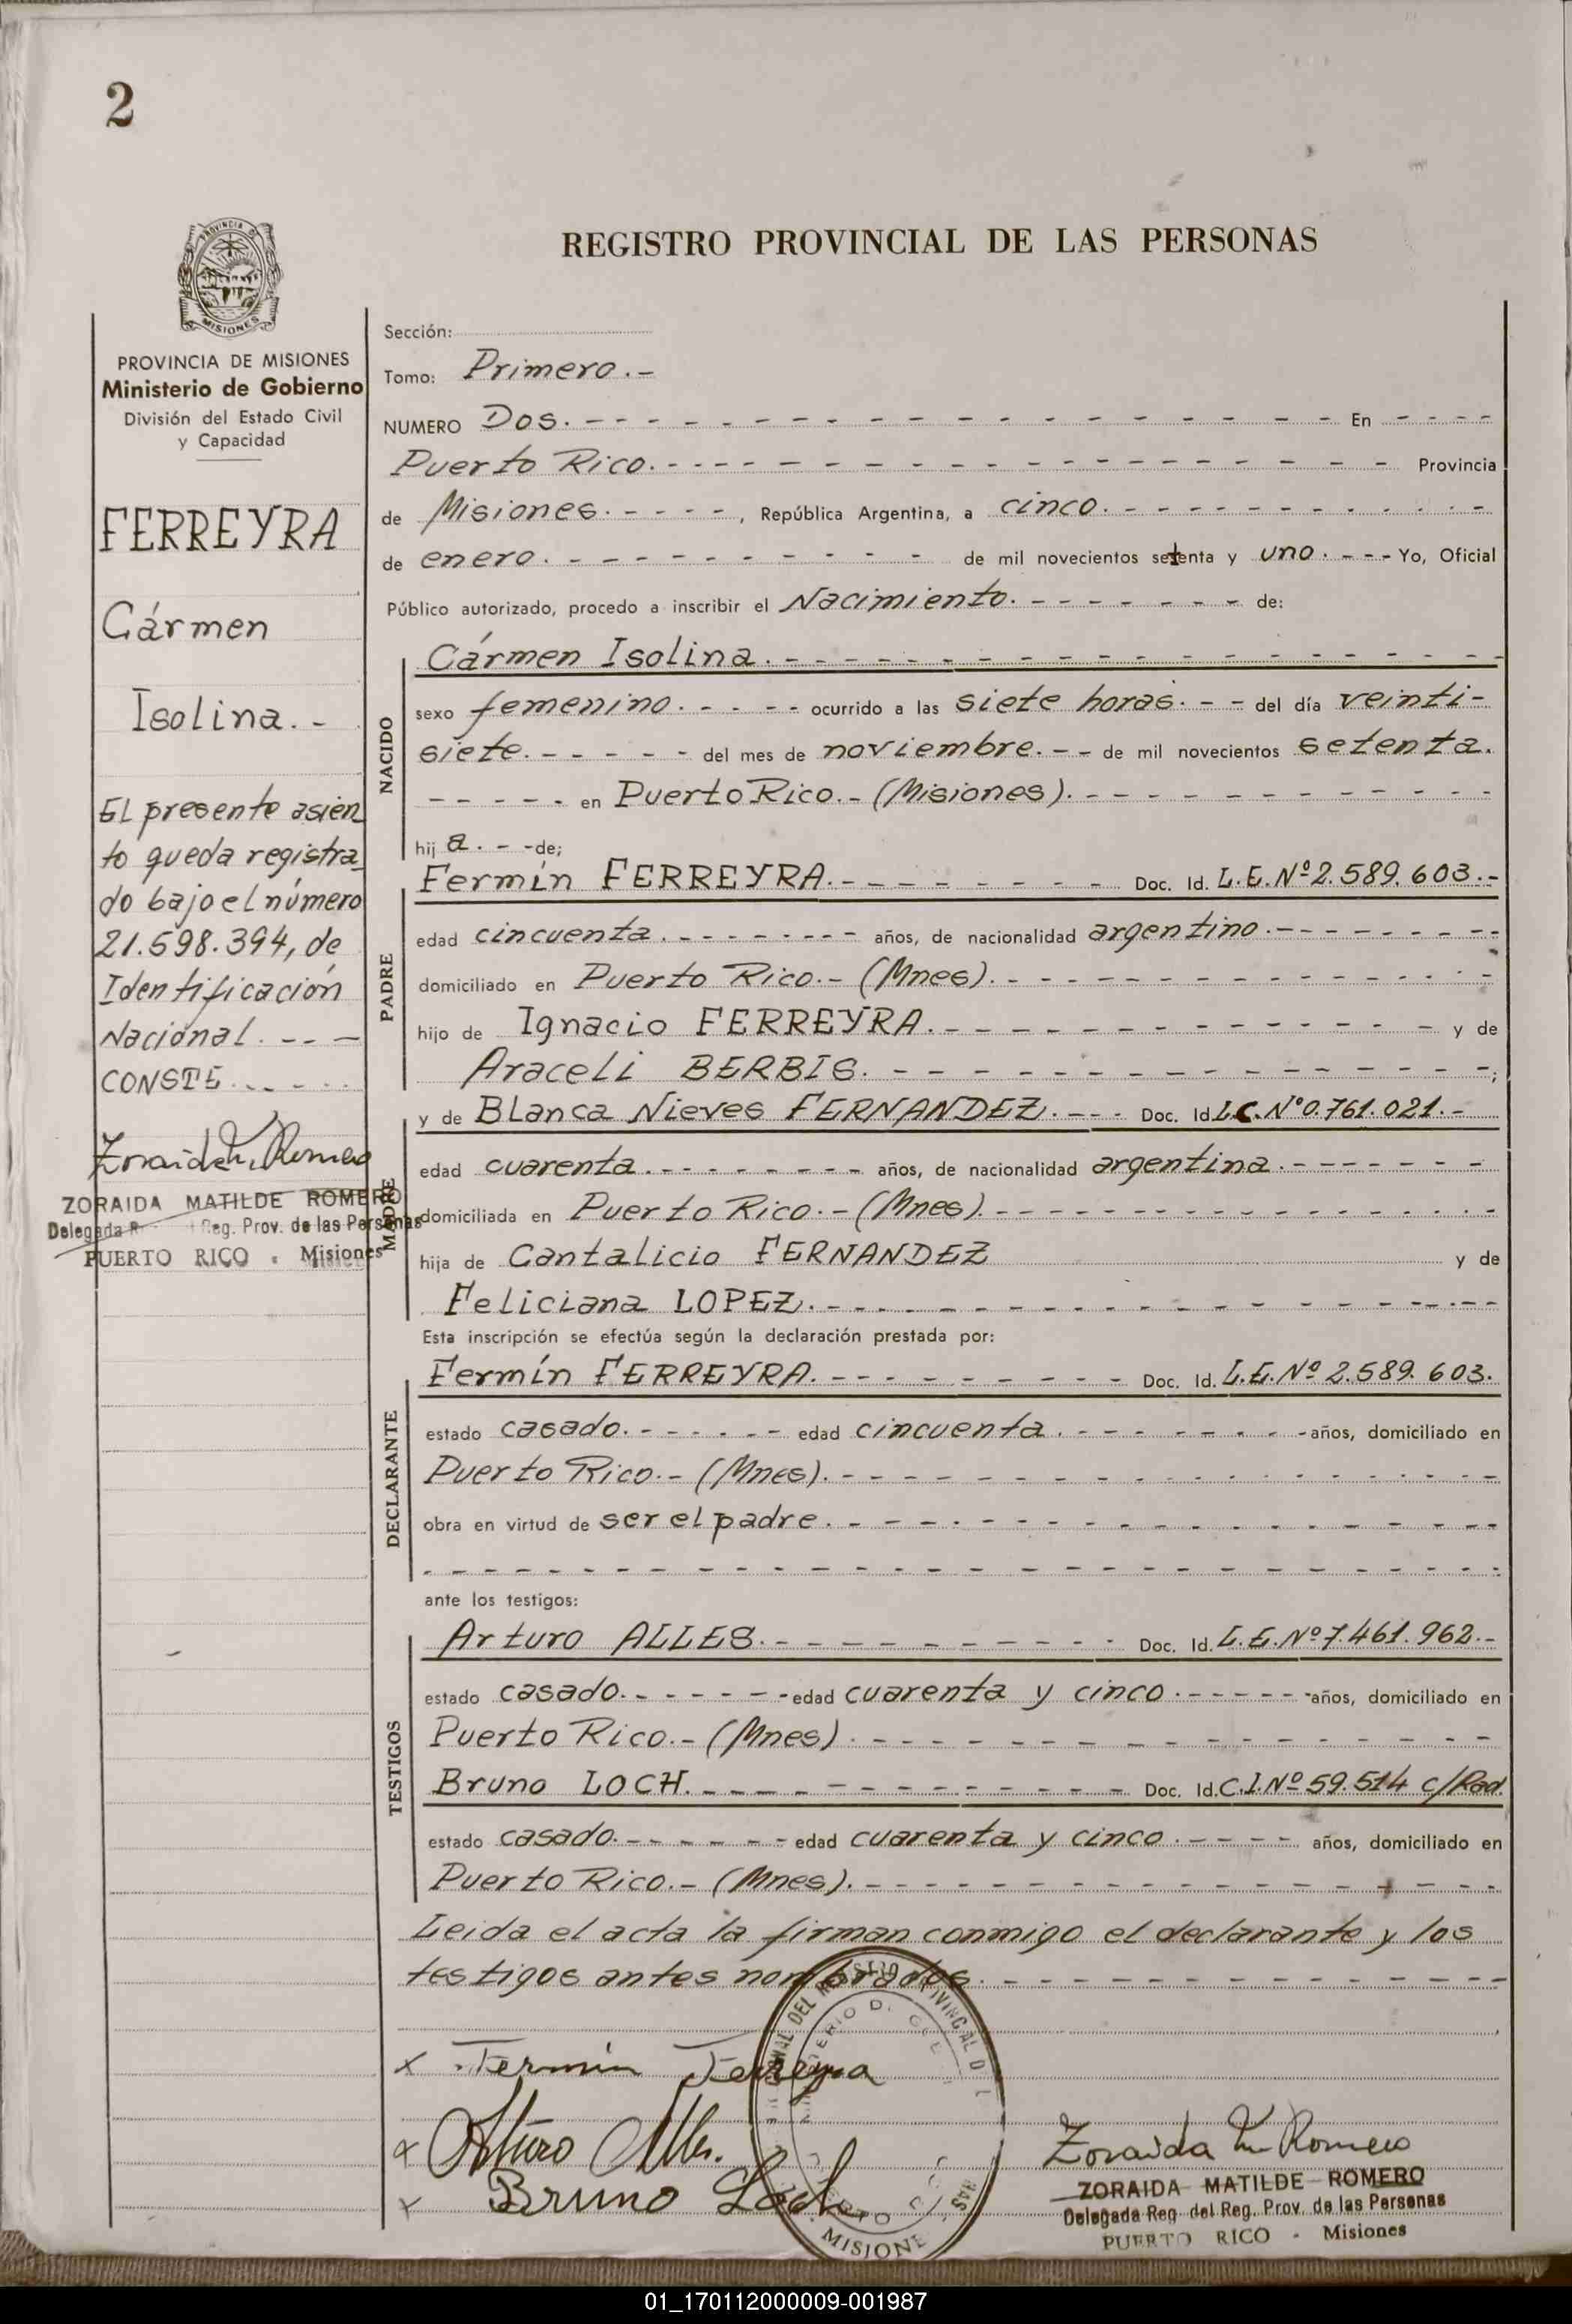 2
REGISTRO PROVINCIAL DE LAS PERSONAS
PROVINCIA DE MISIONES
Ministerio de Gobierno
División del Estado Civil
y Capacidad
FERREYRA
Cármen
Isolina.-
El presente asien
to queda registra
do bajo el número
21.598.394, de
Identificación
Nacional. - - -
CONSTE. - - - -
Zoraida M. Romero
ZORAIDA MATILDE ROMERO
Delegada Reg. Prov. de las Personas
PUERTO RICO - Misiones
Sección:
Tomo: Primero.-
NUMERO Dos. - - - En - - - -
Puerto Rico. - - - Provincia
de Misiones. - - - -, República Argentina, a cinco. - - -
de enero. - - - de mil novecientos setenta y uno. - - - Yo, Oficial
Público autorizado, procedo a inscribir el Nacimiento. - - - de:
NACIDO
Cármen Isolina. - - -
sexo femenino. - - - - ocurrido a las siete horas. - - del día veinti-
siete. - - - - - del mes de noviembre. - - de mil novecientos setenta.
- - - - - en Puerto Rico.- (Misiones). - - -
hij a. - - de;
PADRE
Fermín FERREYRA. - - - Doc. Id. L.E. Nº 2.589.603.-
edad cincuenta. - - - años, de nacionalidad argentino. - - -
domiciliado en Puerto Rico.- (Mnes). - - -
hijo de Ignacio FERREYRA. - - - y de
Araceli BERBIS. - - - ;
MADRE
y de Blanca Nieves FERNANDEZ. - - - Doc. Id. L.C. Nº 0.761.021.-
edad cuarenta. - - - años, de nacionalidad argentina. - - -
domiciliada en Puerto Rico.- (Mnes). - - -
hija de Cantalicio FERNANDEZ y de
Feliciana LOPEZ. - - -
Esta inscripción se efectúa según la declaración prestada por:
DECLARANTE
Fermín FERREYRA. - - - Doc. Id. L.E. Nº 2.589.603.
estado casado. - - - edad cincuenta. - - - años, domiciliado en
Puerto Rico.- (Mnes). - - -
obra en virtud de ser el padre. - - -
- - -
ante los testigos:
TESTIGOS
Arturo ALLES. - - - Doc. Id. L.E. Nº 7.461.962.-
estado casado. - - - edad cuarenta y cinco. - - - años, domiciliado en
Puerto Rico.- (Mnes). - - -
Bruno LOCH. - - - Doc. Id. C.I. Nº 59.514 c/Rad.
estado casado. - - - edad cuarenta y cinco. - - - años, domiciliado en
Puerto Rico.- (Mnes). - - -
Leida el acta la firman conmigo el declarante y los
testigos antes nombrados. - - -
x Fermin Ferreyra
x Arturo Alles.
x Bruno Loch
Zoraida M Romero
ZORAIDA MATILDE ROMERO
Delegada Reg. del Reg. Prov. de las Personas
PUERTO RICO - Misiones
01_170112000009-001987